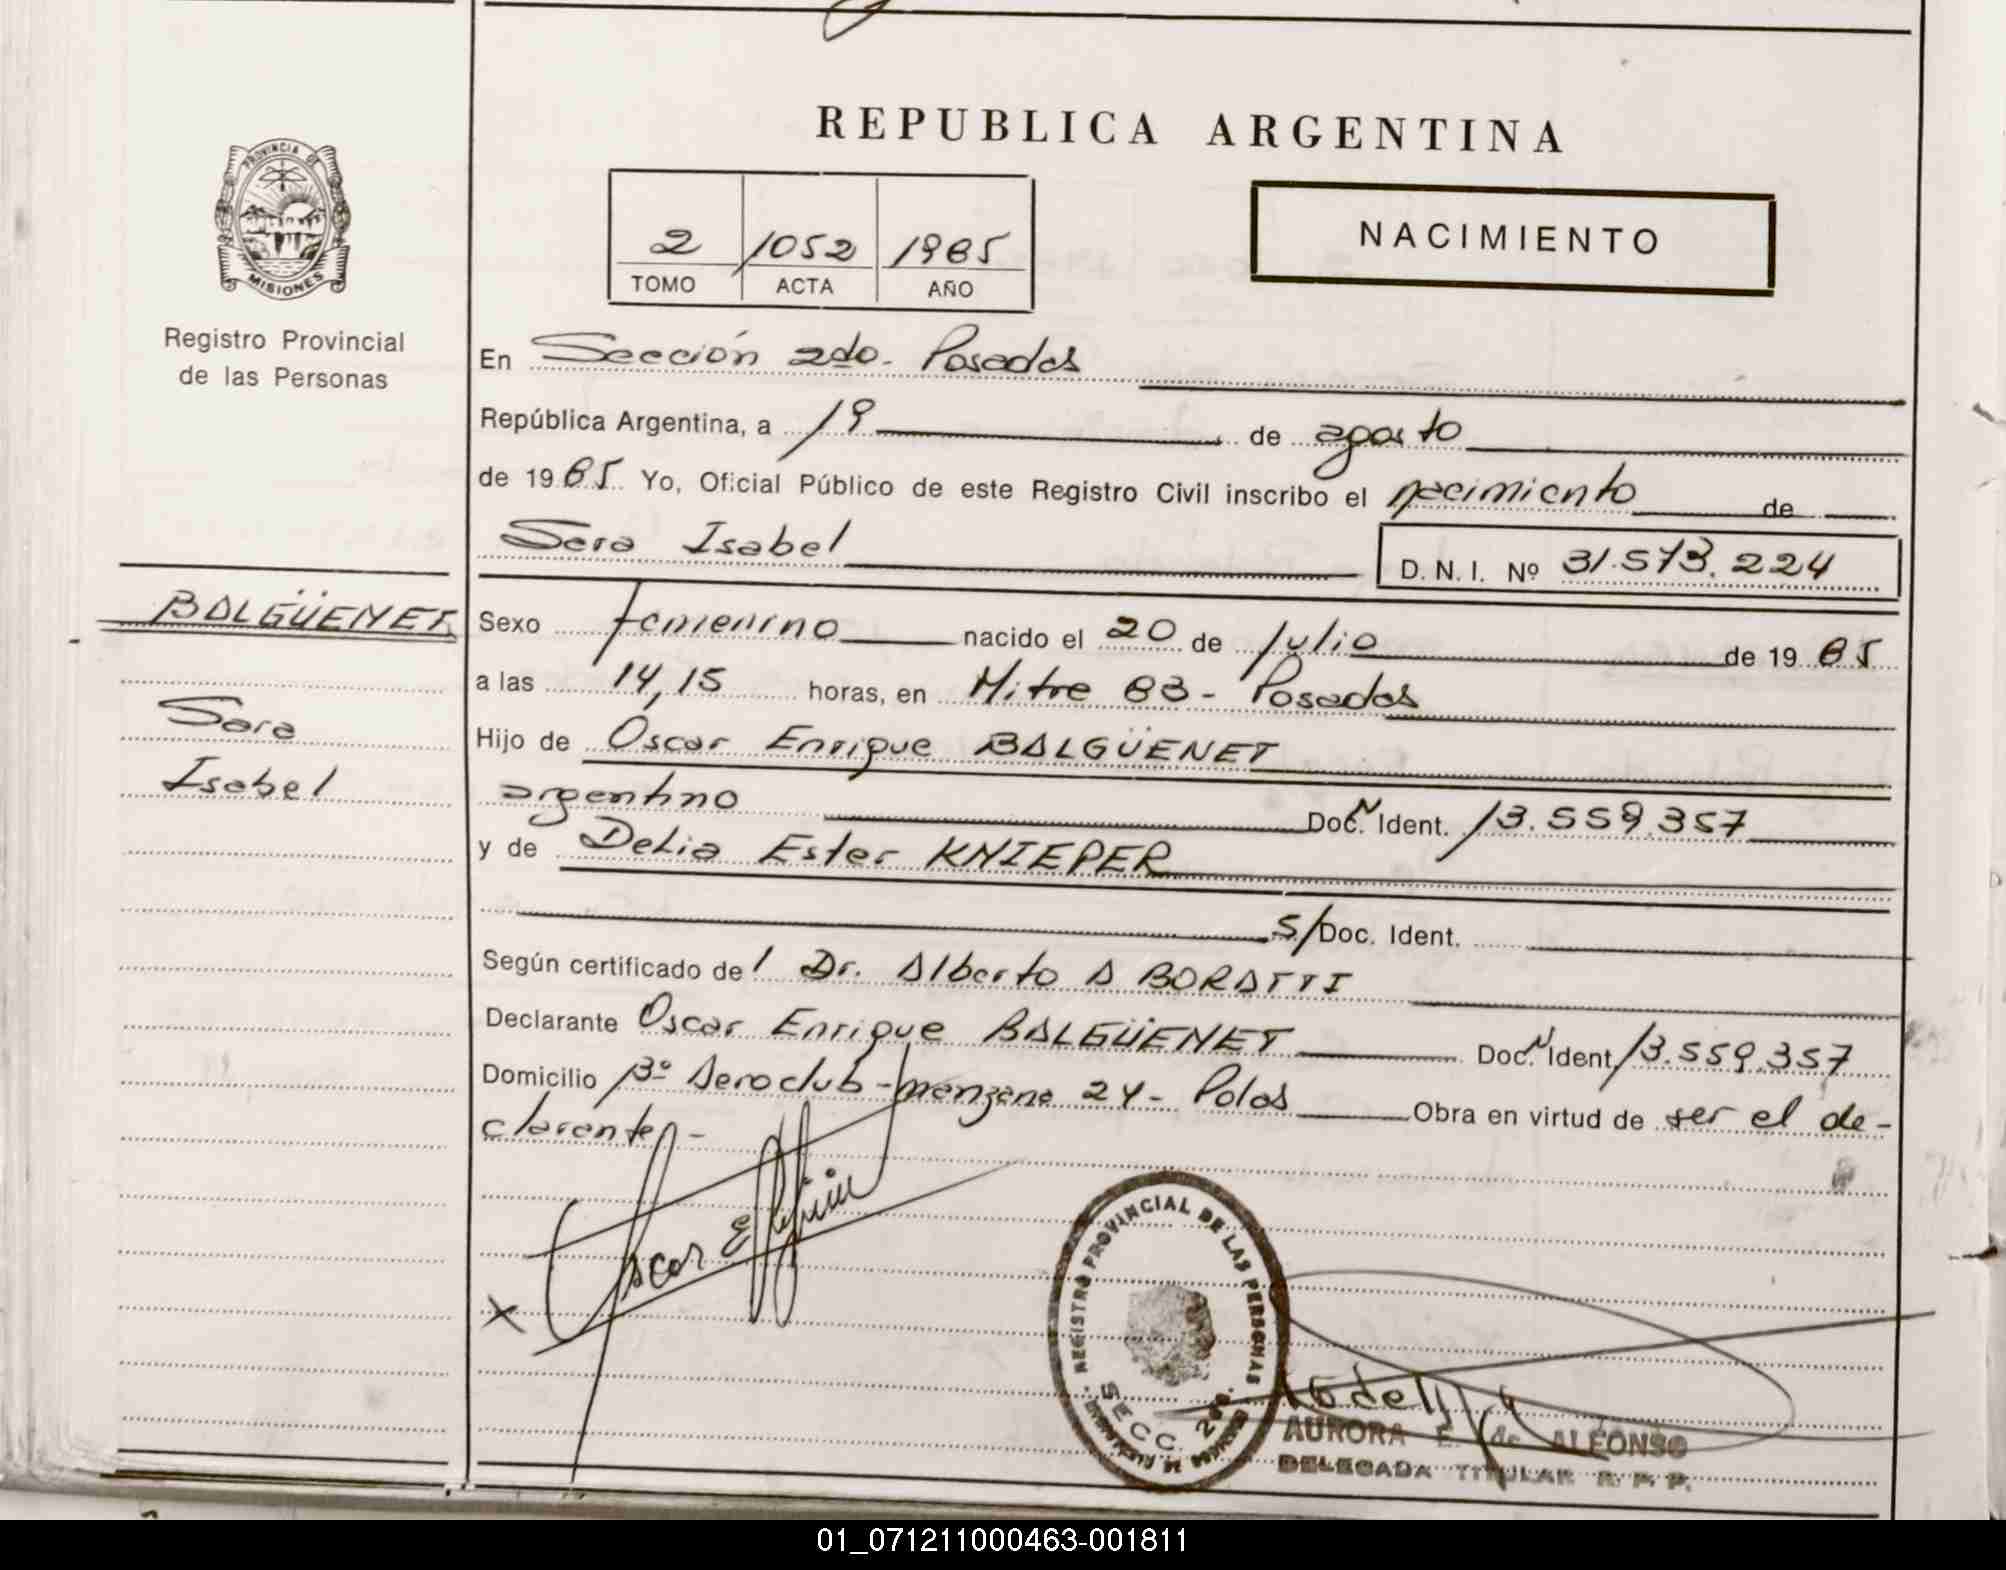 REPUBLICA ARGENTINA
PROVINCIA DE
MISIONES
Registro Provincial
de las Personas
2 1052 1985
TOMO ACTA AÑO
NACIMIENTO
En Sección 2do. Posadas
República Argentina, a 19 de agosto
de 1985 Yo, Oficial Público de este Registro Civil inscribo el nacimiento de
Sara Isabel
D. N. I. Nº 31.573.224
BALGÜENET
Sara
Isabel
Sexo femenino nacido el 20 de Julio de 1985
a las 14,15 horas, en Mitre 83 - Posadas
Hijo de Oscar Enrique BALGÜENET
argentino Doc. N Ident. 13.559.357
y de Delia Ester KNIEPER
S/Doc. Ident.
Según certificado del Dr. Alberto A BORATTI
Declarante Oscar Enrique BALGÜENET Doc. N Ident. 13.559.357
Domicilio Bº Aeroclub - manzana 24 - Pdas Obra en virtud de ser el de-
clarante -
Oscar E
REGISTRO PROVINCIAL DE LAS PERSONAS
SECC. 2da.
AURORA E. de ALFONSO
DELEGADA TITULAR R. P. P.
01_071211000463-001811